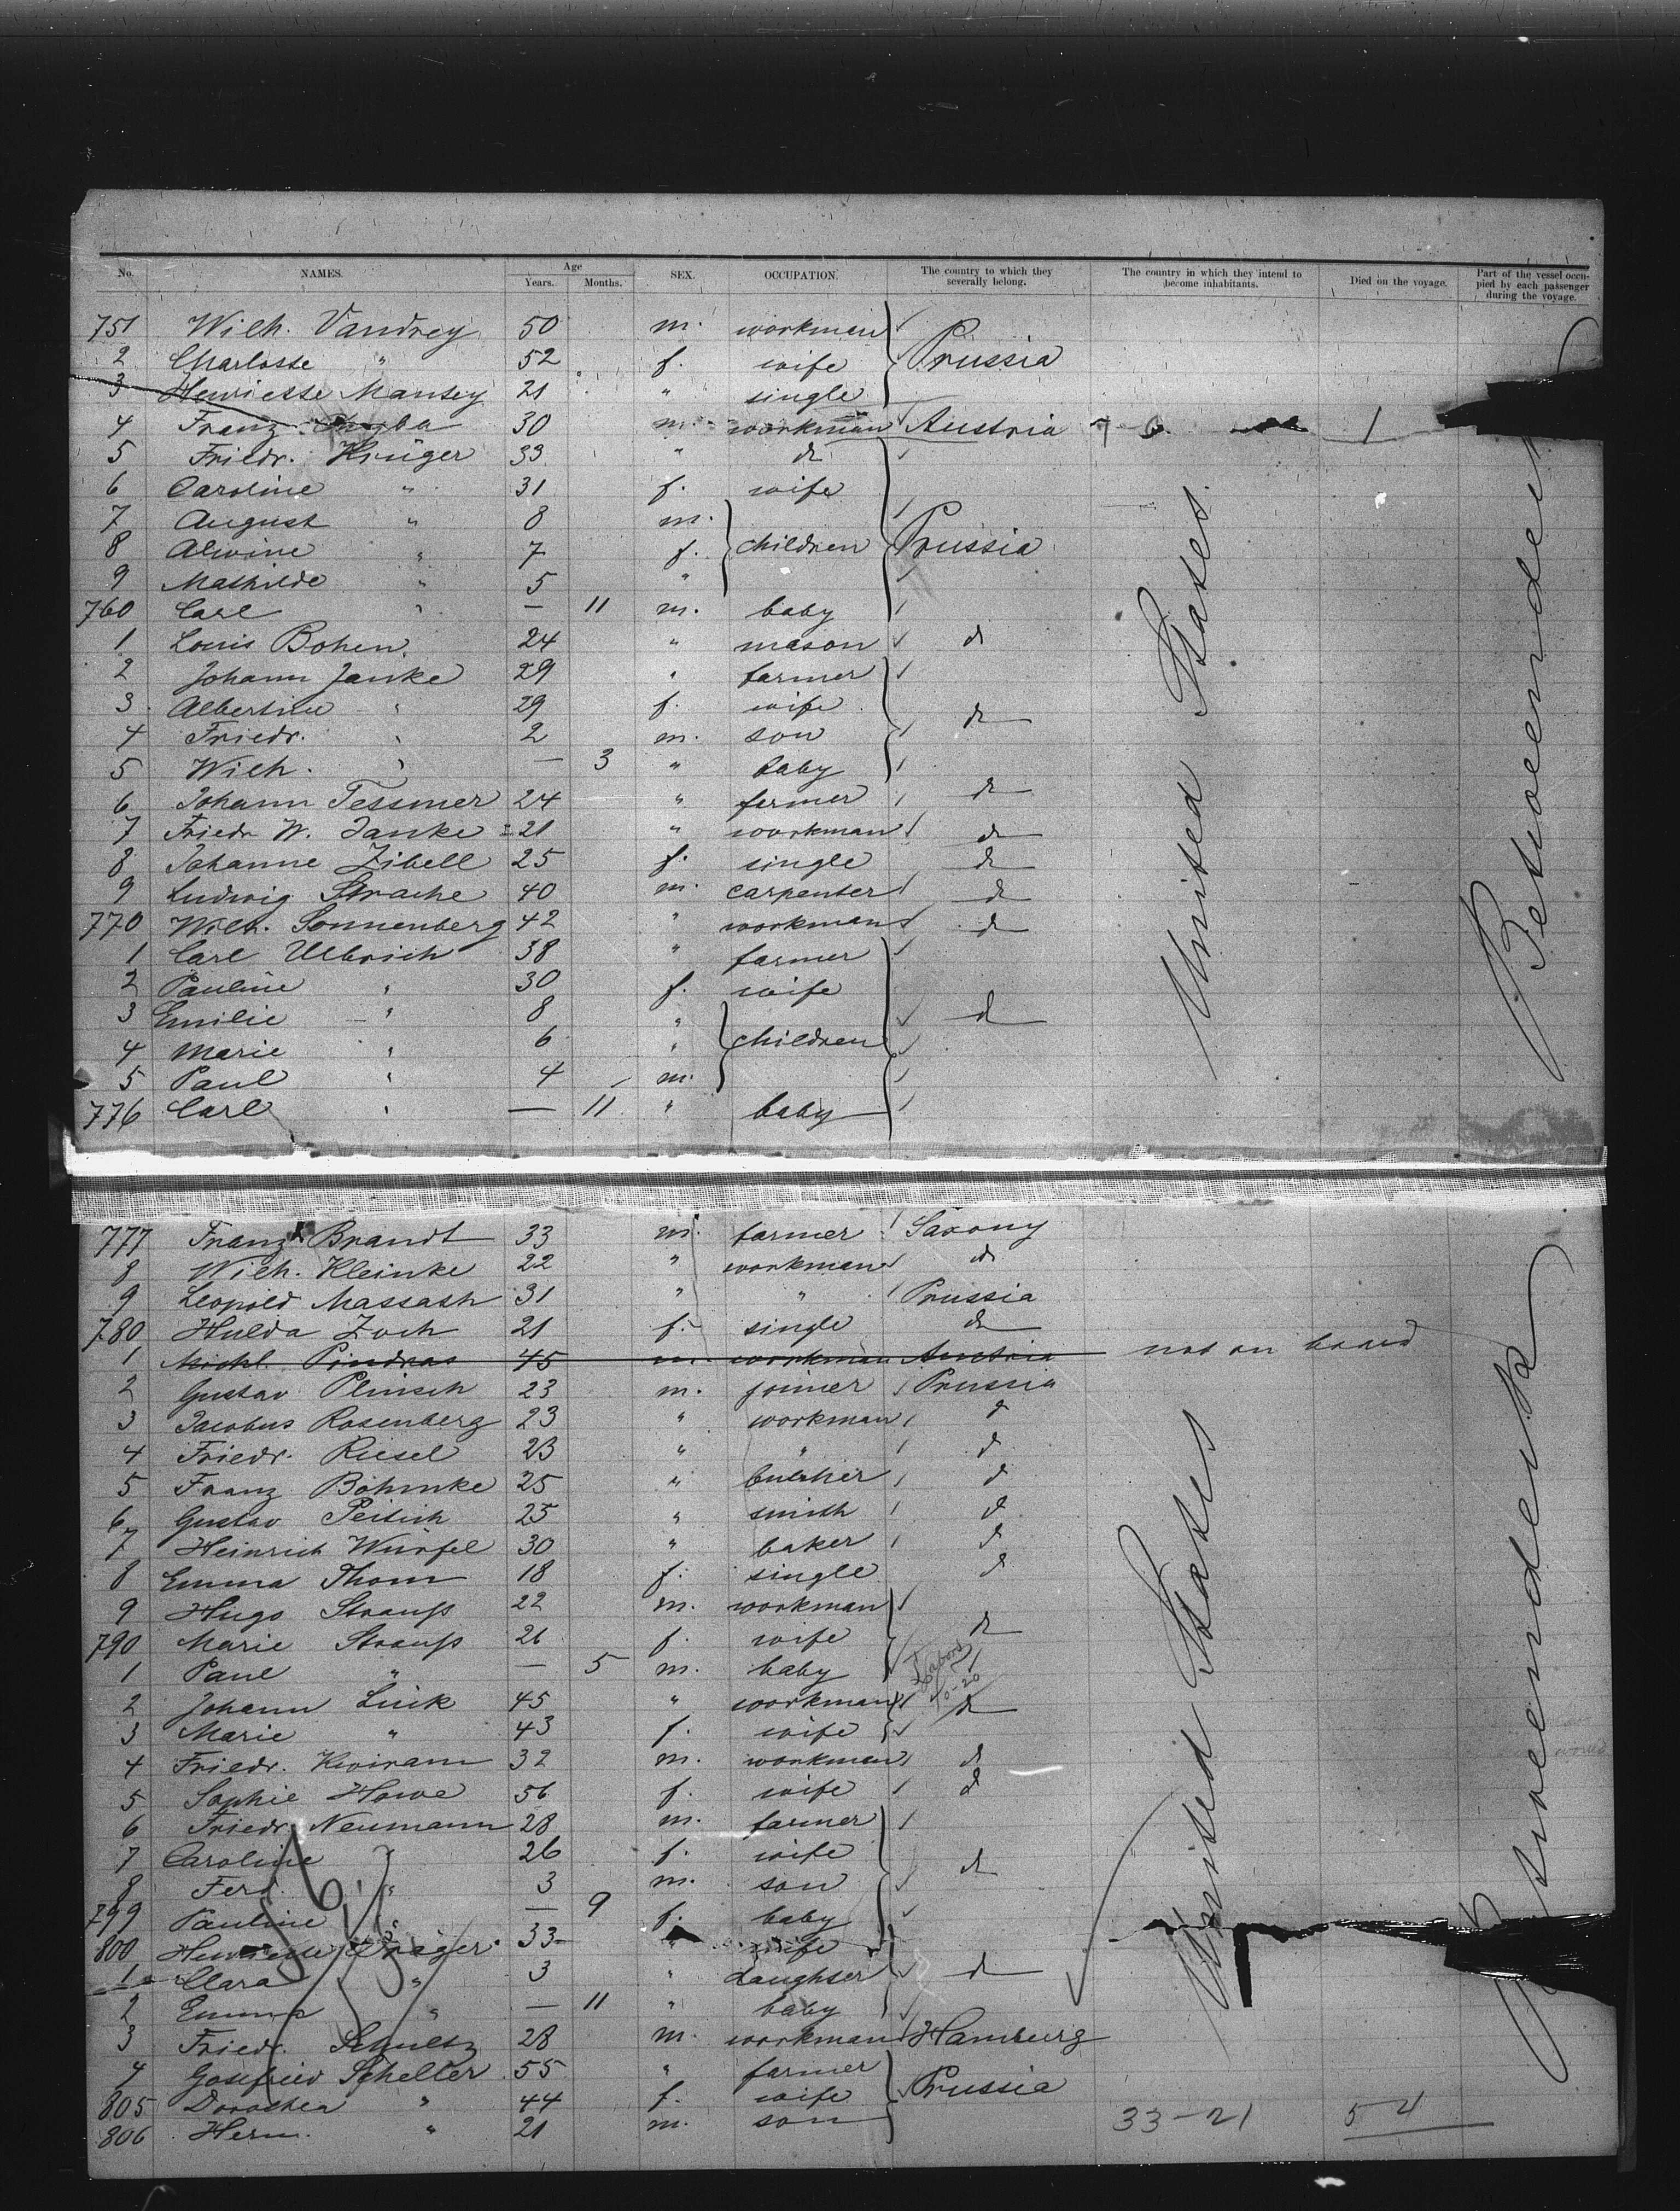 No. NAMES. Age Years. Months. SEX. OCCUPATION. The country to which they severally belong. The country in which they intend to become inhabitants. Died on the voyage. Part of the vessel occupied by each passenger during the voyage.
751 Wilh. Vandrey 50 m. workman Prussia
2 Charlotte " 52 f. wife
3 Henriette Mantey 21 " single
4 Franz 30 m. workman Austria 1
5 Friedr. Krüger 33 " do
6 Caroline " 31 f. wife
7 August " 8 m. children Prussia
8 Alwine " 7 f.
9 Mathilde " 5 "
760 Carl " — 11 m. baby
1 Louis Bohen. 24 " mason do
2 Johann Janke 29 " farmer
3 Albertine " 29 f. wife do
4 Friedr. " 2 m. son
5 Wilh. " — 3 " baby
6 Johann Tessmer 24 " farmer do
7 Friedr W. Janke 21 " workman do
8 Johanne Zibell 25 f. single do
9 Ludwig Strache 40 m. carpenter do
770 Wilh. Sonnenberg 42 " workman do
1 Carl Ulbrich 38 " farmer
2 Pauline " 30 f. wife
3 Emilie " 8 " children do
4 Marie " 6 "
5 Paul " 4 m.
776 Carl " — 11 " baby
United States
Betweendeck
777 Franz Brandt 33 m. farmer Saxony
8 Wilh. Kleinke 22 " workman do
9 Leopold Massash 31 " " Prussia
780 Hulda Zoch 21 f. single do
1 Michl. Pindras 45 m. workman Austria not on board
2 Gustav Plinsch 23 m. joiner Prussia
3 Jacobus Rosenberg 23 " workman do
4 Friedr. Riesel 23 " " do
5 Franz Böhmke 25 " butcher do
6 Gustav Peitsch 25 " smith do
7 Heinrich Würfel 30 " baker do
8 Emma Thom 18 f. single do
9 Hugo Strauß 22 m. workman
790 Marie Strauß 26 f. wife do
1 Paul " — 5 m. baby
2 Johann Link 45 " workman do
3 Marie " 43 f. wife
4 Friedr. Kwiram 32 m. workman do
5 Sophie Howe 56 f. wife do
6 Friedr. Neumann 28 m. farmer
7 Caroline " 26 f. wife do
8 Ferd. " 3 m. son
799 Pauline " — 9 f. baby
800 Henriette 33 " wife
1 Clara " 3 " daughter do
2 Emma " — 11 " baby
3 Friedr. Schultz 28 m. workman Hamburg
4 Gottfried Scheller 55 " farmer Prussia
805 Dorothea " 44 f. wife
806 Herm. " 21 m. son
33-21 54
United States
Betweendeck